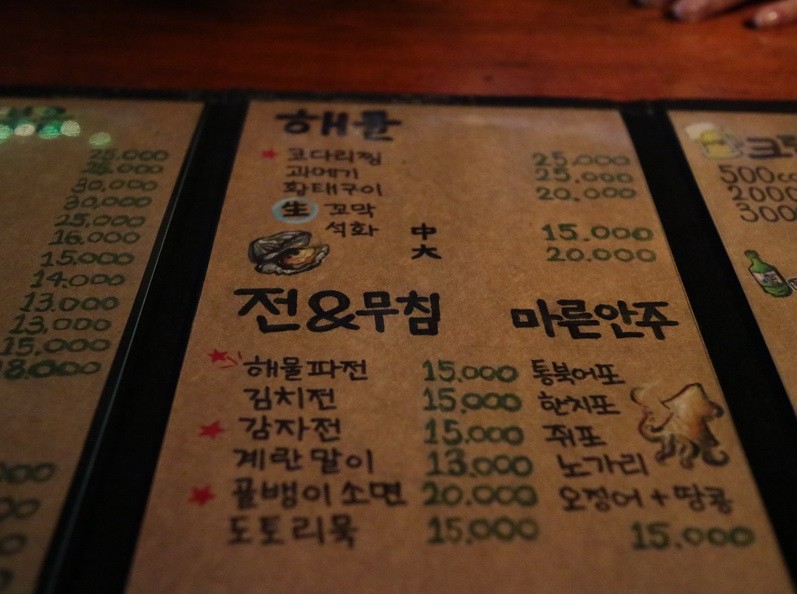 25.000
25.000
30.000
30.000
25.000
16.000
15.000
14.000
13.000
13,000
15.000
8.000
해물
코다리찜 25.000
과메기 25.000
황태구이 20.000
生 꼬막 中 15.000
석화 大 20.000
전&무침
해물파전 15.000
김치전 15.000
감자전 15.000
계란말이 13.000
골뱅이소면 20.000
도토리묵 15.000
마른안주
통북어포
한치포
쥐포
노가리
오징어+땅콩
15.000
500cc
2000
300